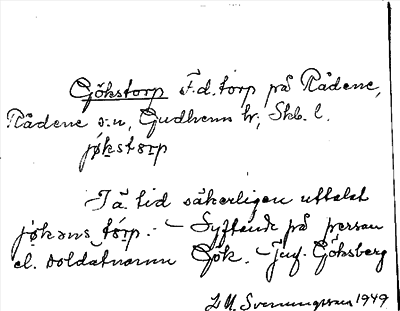 Gökstorp F.d. torp på Rådene,
Rådene s:n, Gudhems hr, Skb. l.
jøkstɔrp
I ä. tid säkerligen uttalat
jøkans tórp. – Syftande på person
el. soldatnamn Gök. – Jmf. Göksberg
Svenungsson 1949